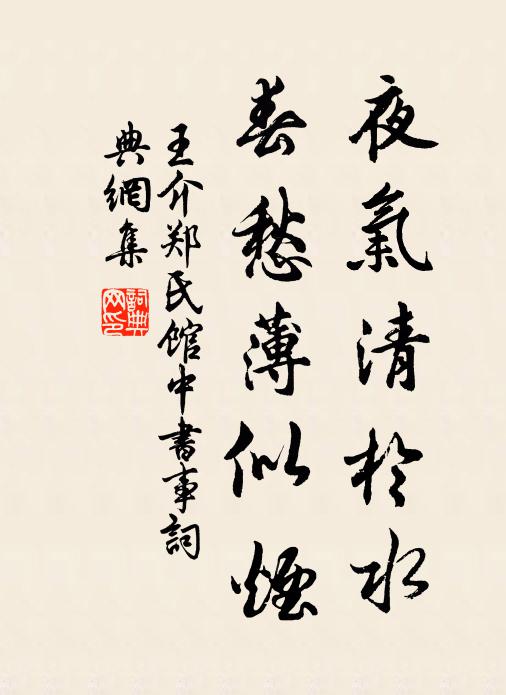 夜氣清於水
春愁薄似煙
王介郑民館中書事詞
典網集
詞典
网印